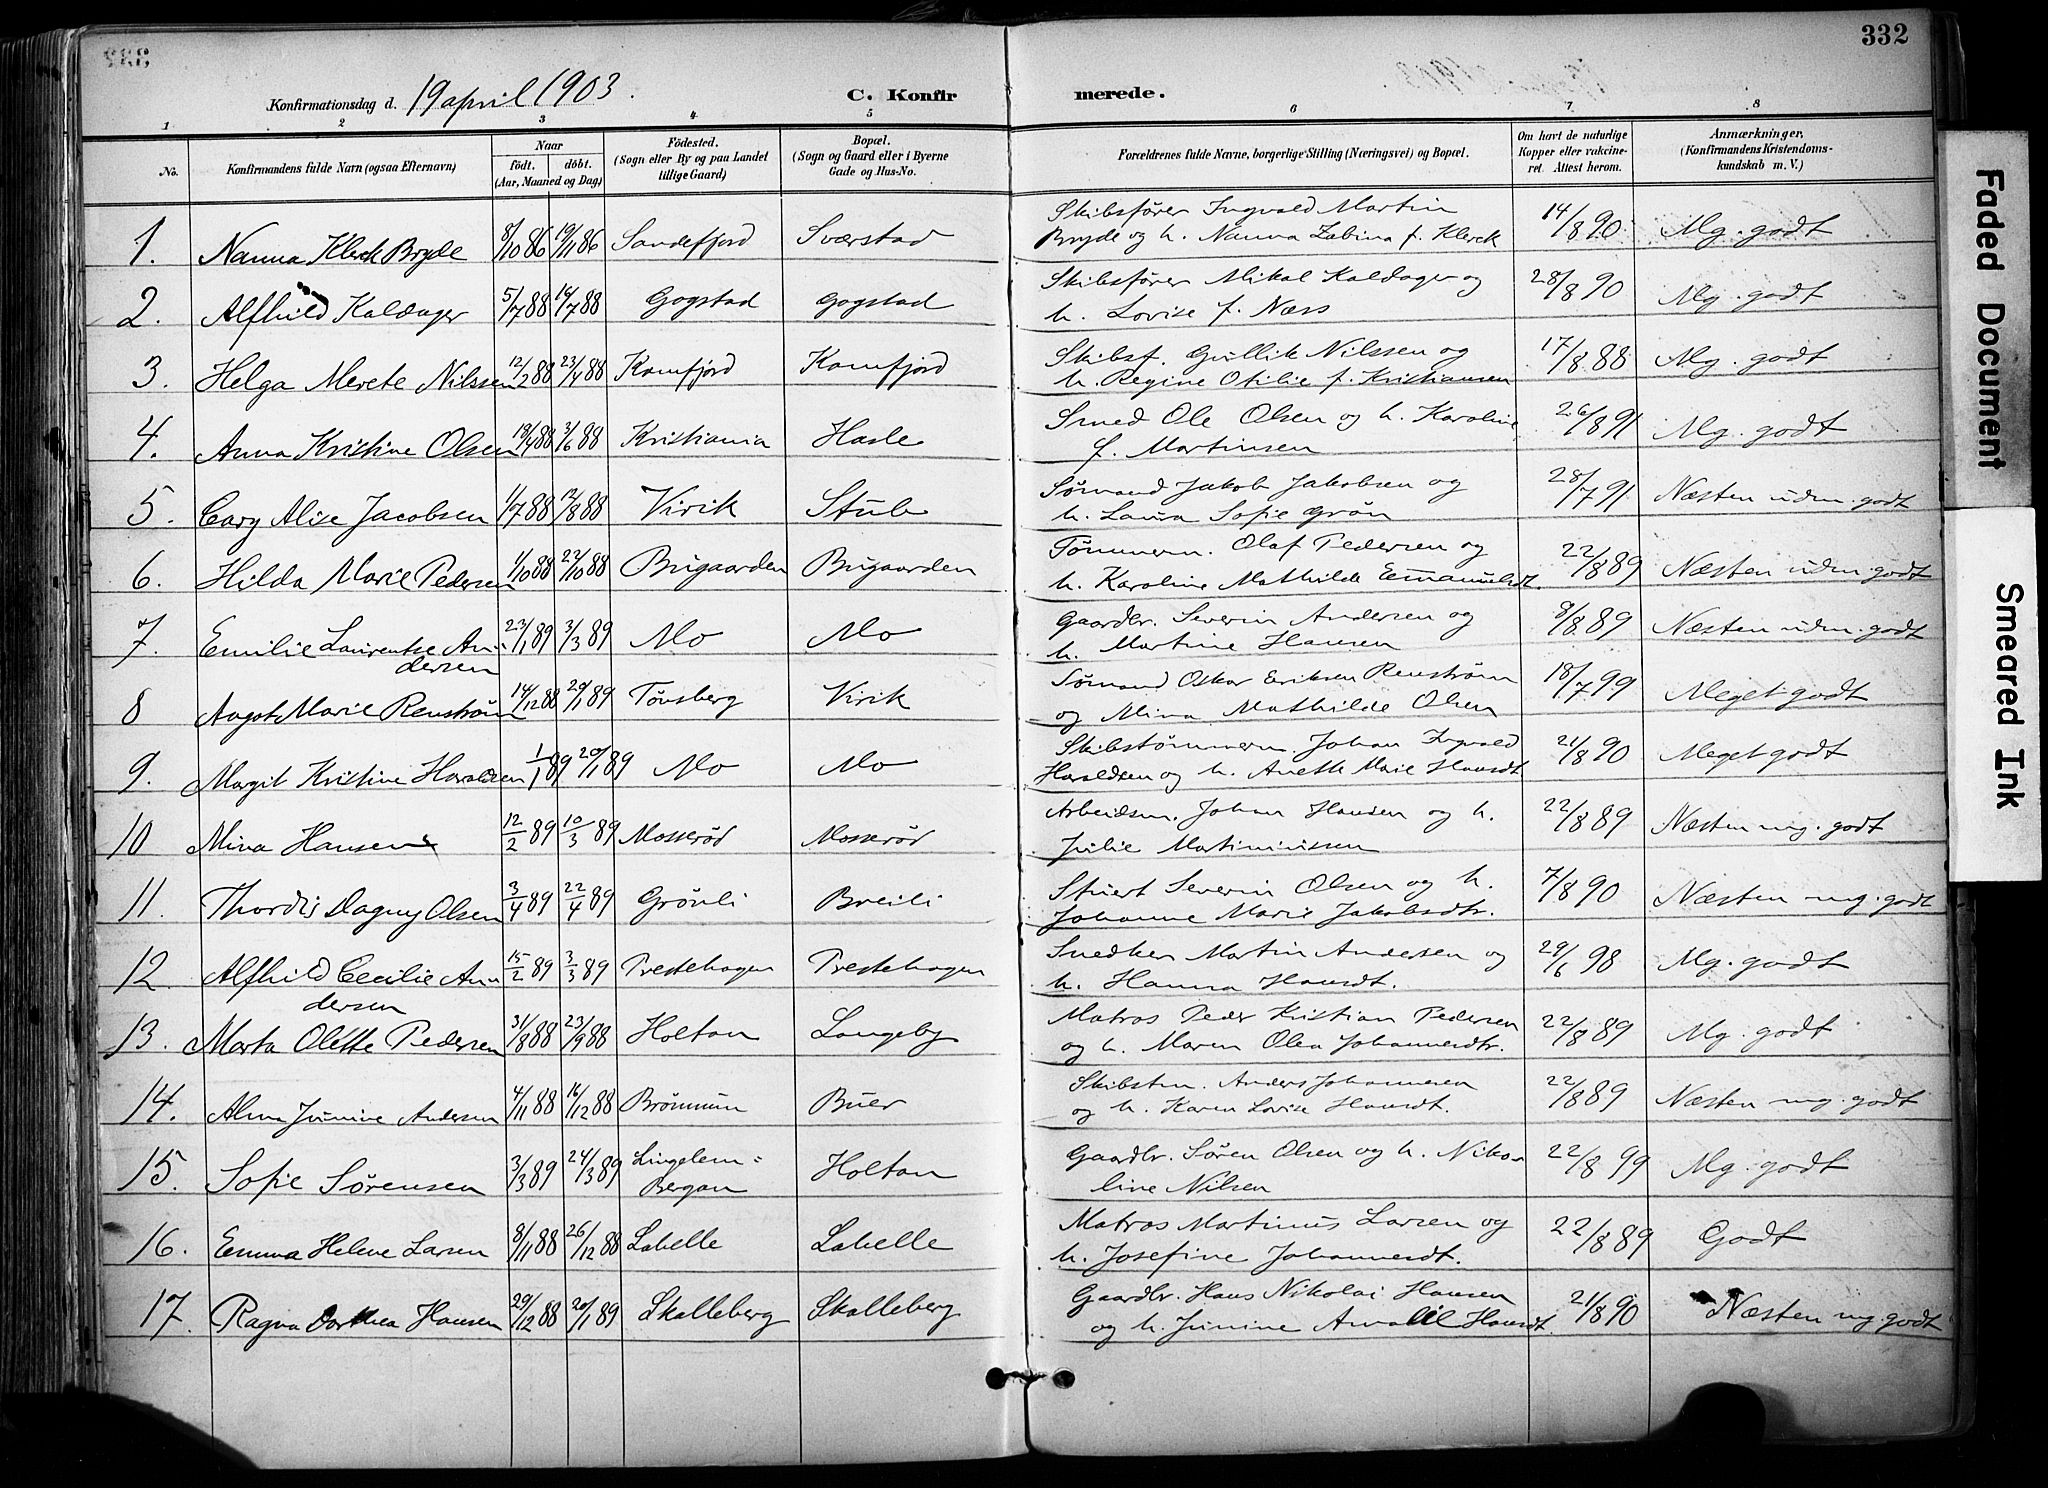 332
Konfirmationsdag d. 19 april 1903. C. Konfirmerede.
1 2 3 4 5 6 7 8
No. Konfirmandens fulde Navn (ogsaa Efternavn) Naar født. døbt. (Aar, Maaned og Dag) Fødested. (Sogn eller By og paa Landet tillige Gaard) Bopæl. (Sogn og Gaard eller i Byerne Gade og Hus-No.) Forældrenes fulde Navne, borgerlige Stilling (Næringsvei) og Bopæl. Om havt de naturlige Kopper eller vakcineret. Attest herom. Anmærkninger. (Konfirmandens Kristendomskundskab m. V.)
1. Nanna Klerck Bryde 8/10 86 19/11 86 Sandefjord Sværstad Skibsfører Ingvald Martin 14/8 90 Mg. godt
Bryde og h. Nanna Zabina f. Klerck
2. Alfhild Kaldager 5/7 88 14/7 88 Gogstad Gogstad Skibsfører Mikal Kaldager og 28/8 90 Mg. godt
h. Lovise f. Næss
3. Helga Merete Nilssen 12/2 88 23/4 88 Kamfjord Kamfjord Skibsf. Gullik Nilssen og 17/8 88 Mg. godt
h. Regine Otilie f. Kristiansen
4. Anna Kristine Olsen 19/4 88 3/6 88 Kristiania Hasle Smed Ole Olsen og h. Karoline 26/8 91 Mg. godt
f. Martinsen
5. Cary Alise Jacobsen 1/7 88 12/8 88 Virik Stub Sømand Jakob Jakobsen og 28/7 91 Næsten udm. godt
h. Laura Sofie Grøn
6. Hilda Marie Pedersen 1/10 88 22/10 88 Bugaarden Bugaarden Tømmerm. Olaf Pedersen og 22/8 89 Næsten udm. godt
h. Karoline Mathilde Emanuelsdt.
7. Emilie Laurentse An- 23/1 89 3/3 89 Mo Mo Gaardbr. Severin Andersen og 9/8 89 Næsten udm. godt
dersen h. Martine Hansen
8 Aagot Marie Renstrøm 14/12 88 29/1 89 Tønsberg Virik Sømand Oskar Eriksen Renstrøm 18/7 99 Meget godt
og Mina Mathilde Olsen
9. Margit Kristine Haraldsen 1/1 89 20/1 89 Mo Mo Skibstømmerm. Johan Ingvald 21/8 90 Meget godt
Haraldsen og h. Anette Marie Hansdt.
10 Mina Hansen 12/2 89 10/3 89 Mosserød Mosserød Arbeidsm. Johan Hansen og h. 22/8 89 Næsten mg. godt
Julie Martiniussen
11. Thordis Dagny Olsen 3/4 89 22/4 89 Grønli Breili Stuert Severin Olsen og h. 7/8 90 Næsten mg. godt
Johanne Marie Jakobsdtr.
12. Alfhild Cecilie An- 15/2 89 3/3 89 Prestehagen Prestehagen Snedker Martin Andersen og 29/6 98 Mg. godt
dersen h. Hanna Hansdt.
13. Marta Olette Pedersen 31/8 88 23/9 88 Holtan Langeby Matros Peder Kristian Pedersen 22/8 89 Mg. godt
og h. Maren Olea Johannesdtr.
14. Alma Junine Andersen 4/11 88 16/12 88 Brømnum Buer Skibstm. Anders Johannesen 22/8 89 Næsten mg. godt
og h. Karen Lovise Hansdt.
15. Sofie Sørensen 3/3 89 24/3 89 Lingelem= Holtan Gaardbr. Søren Olsen og h. Niko- 22/8 99 Mg. godt
Bergan line Nilsen
16. Emma Helene Larsen 8/11 88 26/12 88 Labelle Labelle Matros Martinus Larsen og 22/8 89 Godt
h. Josefine Johannesdt.
17. Ragna Dorthea Hansen 29/12 88 20/1 89 Skalleberg Skalleberg Gaardbr. Hans Nikolai Hansen 21/8 90 Næsten mg. godt
og h. Junine Amalie Hansdt.
Faded Document
Smeared Ink